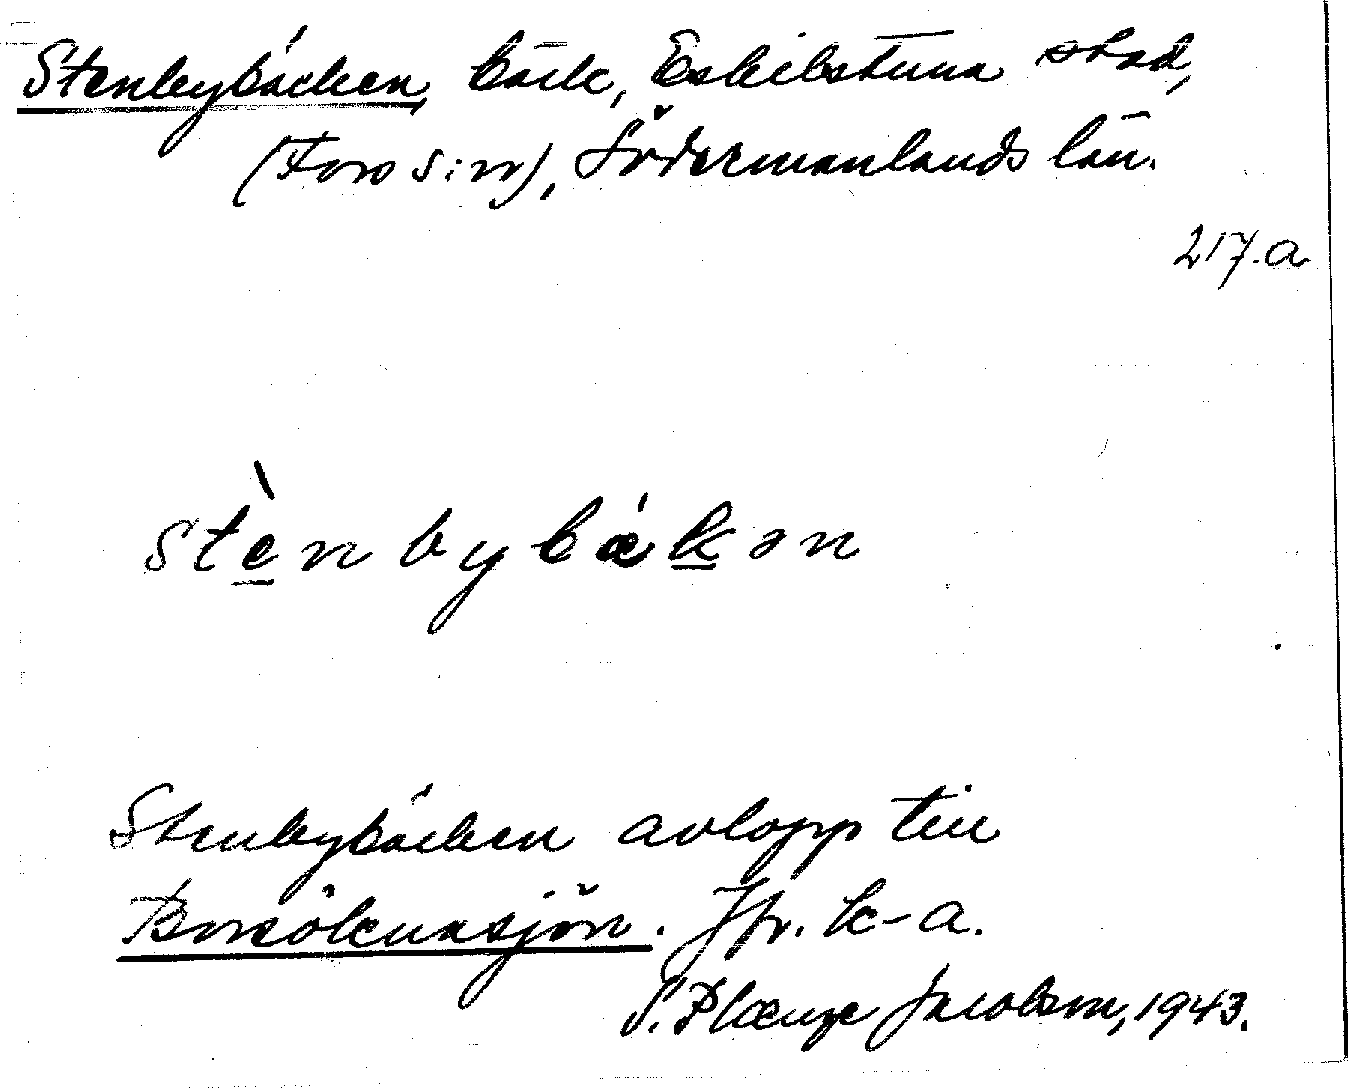 Stenbybäcken, bäck, Eskilstuna stad,
(Fors s:n), Södermanlands län.
217.a
stènbybǽkən
Stenbybäcken avlopp till
Borsöknasjön. Jfr. k-a.
S. Plænge Jacobson, 1943.